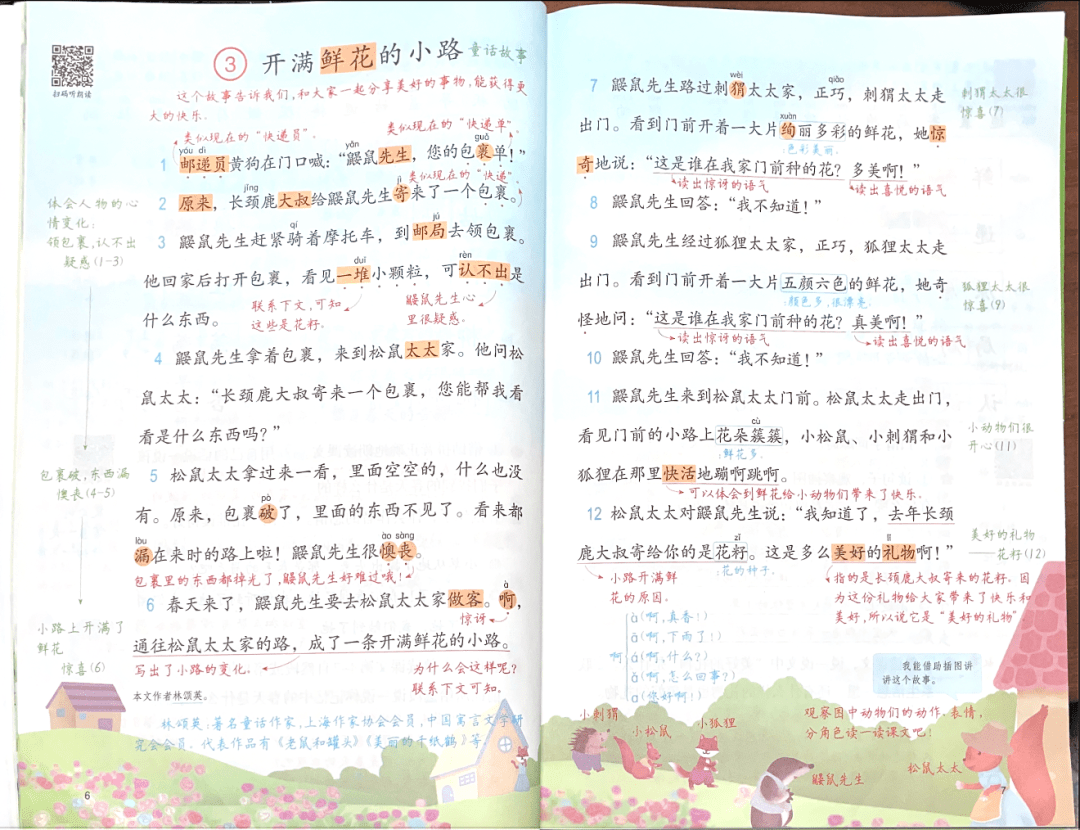 扫码听朗读
3 开满鲜花的小路 童话故事
这个故事告诉我们,和大家一起分享美好的事物,能获得更
大的快乐.
类似现在的“快递员”.
类似现在的“快递单”.
yóu dì yǎn guǒ
1 邮递员黄狗在门口喊:“鼹鼠先生,您的包裹单!”
类似现在的“快递”.
jǐng jì
2 原来,长颈鹿大叔给鼹鼠先生寄来了一个包裹。
体会人物的心
情变化:
领包裹,认不出
疑惑(1-3)
qí jú
3 鼹鼠先生赶紧骑着摩托车,到邮局去领包裹。
duī rèn
他回家后打开包裹,看见一堆小颗粒,可认不出是
什么东西。
联系下文,可知
这些是花籽.
鼹鼠先生心
里很疑惑.
4 鼹鼠先生拿着包裹,来到松鼠太太家。他问松
鼠太太:“长颈鹿大叔寄来一个包裹,您能帮我看
看是什么东西吗?”
包裹破,东西漏
懊丧(4-5)
5 松鼠太太拿过来一看,里面空空的,什么也没
pò
有。原来,包裹破了,里面的东西不见了。看来都
lòu ào sàng
漏在来时的路上啦!鼹鼠先生很懊丧。
包裹里的东西都掉光了,鼹鼠先生好难过哦!
à
6 春天来了,鼹鼠先生要去松鼠太太家做客。啊,
惊讶
通往松鼠太太家的路,成了一条开满鲜花的小路。
小路上开满了
鲜花
惊喜(6)
写出了小路的变化.
为什么会这样呢?
联系下文可知.
本文作者林颂英。
林颂英:著名童话作家,上海作家协会会员,中国寓言文学研
究会会员.代表作品有《老鼠和罐头》《美丽的千纸鹤》等
6
wèi qiǎo
7 鼹鼠先生路过刺猬太太家,正巧,刺猬太太走
刺猬太太很
惊喜(7)
xuàn
出门。看到门前开着一大片绚丽多彩的鲜花,她惊
:色彩美丽.
奇地说:“这是谁在我家门前种的花?多美啊!”
读出惊讶的语气
读出喜悦的语气
8 鼹鼠先生回答:“我不知道!”
9 鼹鼠先生经过狐狸太太家,正巧,狐狸太太走
出门。看到门前开着一大片五颜六色的鲜花,她奇
:颜色多,很漂亮.
狐狸太太很
惊喜(9)
怪地问:“这是谁在我家门前种的花?真美啊!”
读出惊讶的语气
读出喜悦的语气
10 鼹鼠先生回答:“我不知道!”
11 鼹鼠先生来到松鼠太太门前。松鼠太太走出门,
cù
看见门前的小路上花朵簇簇,小松鼠、小刺猬和小
:鲜花多.
小动物们很
开心(11)
狐狸在那里快活地蹦啊跳啊。
可以体会到鲜花给小动物们带来了快乐.
12 松鼠太太对鼹鼠先生说:“我知道了,去年长颈
zǐ lǐ
鹿大叔寄给你的是花籽。这是多么美好的礼物啊!”
美好的礼物
——花籽(12)
小路开满鲜
花的原因.
:花的种子.
指的是长颈鹿大叔寄来的花籽.因
为这份礼物给大家带来了快乐和
美好,所以说它是“美好的礼物”.
啊
ā(啊,真香!)
ā(啊,下雨了!)
á(啊,什么?)
ǎ(啊,怎么回事?)
à(您好啊!)
我能借助插图讲
讲这个故事。
观察图中动物们的动作、表情,
分角色读一读课文吧!
小刺猬
小松鼠
小狐狸
鼹鼠先生
松鼠太太
7